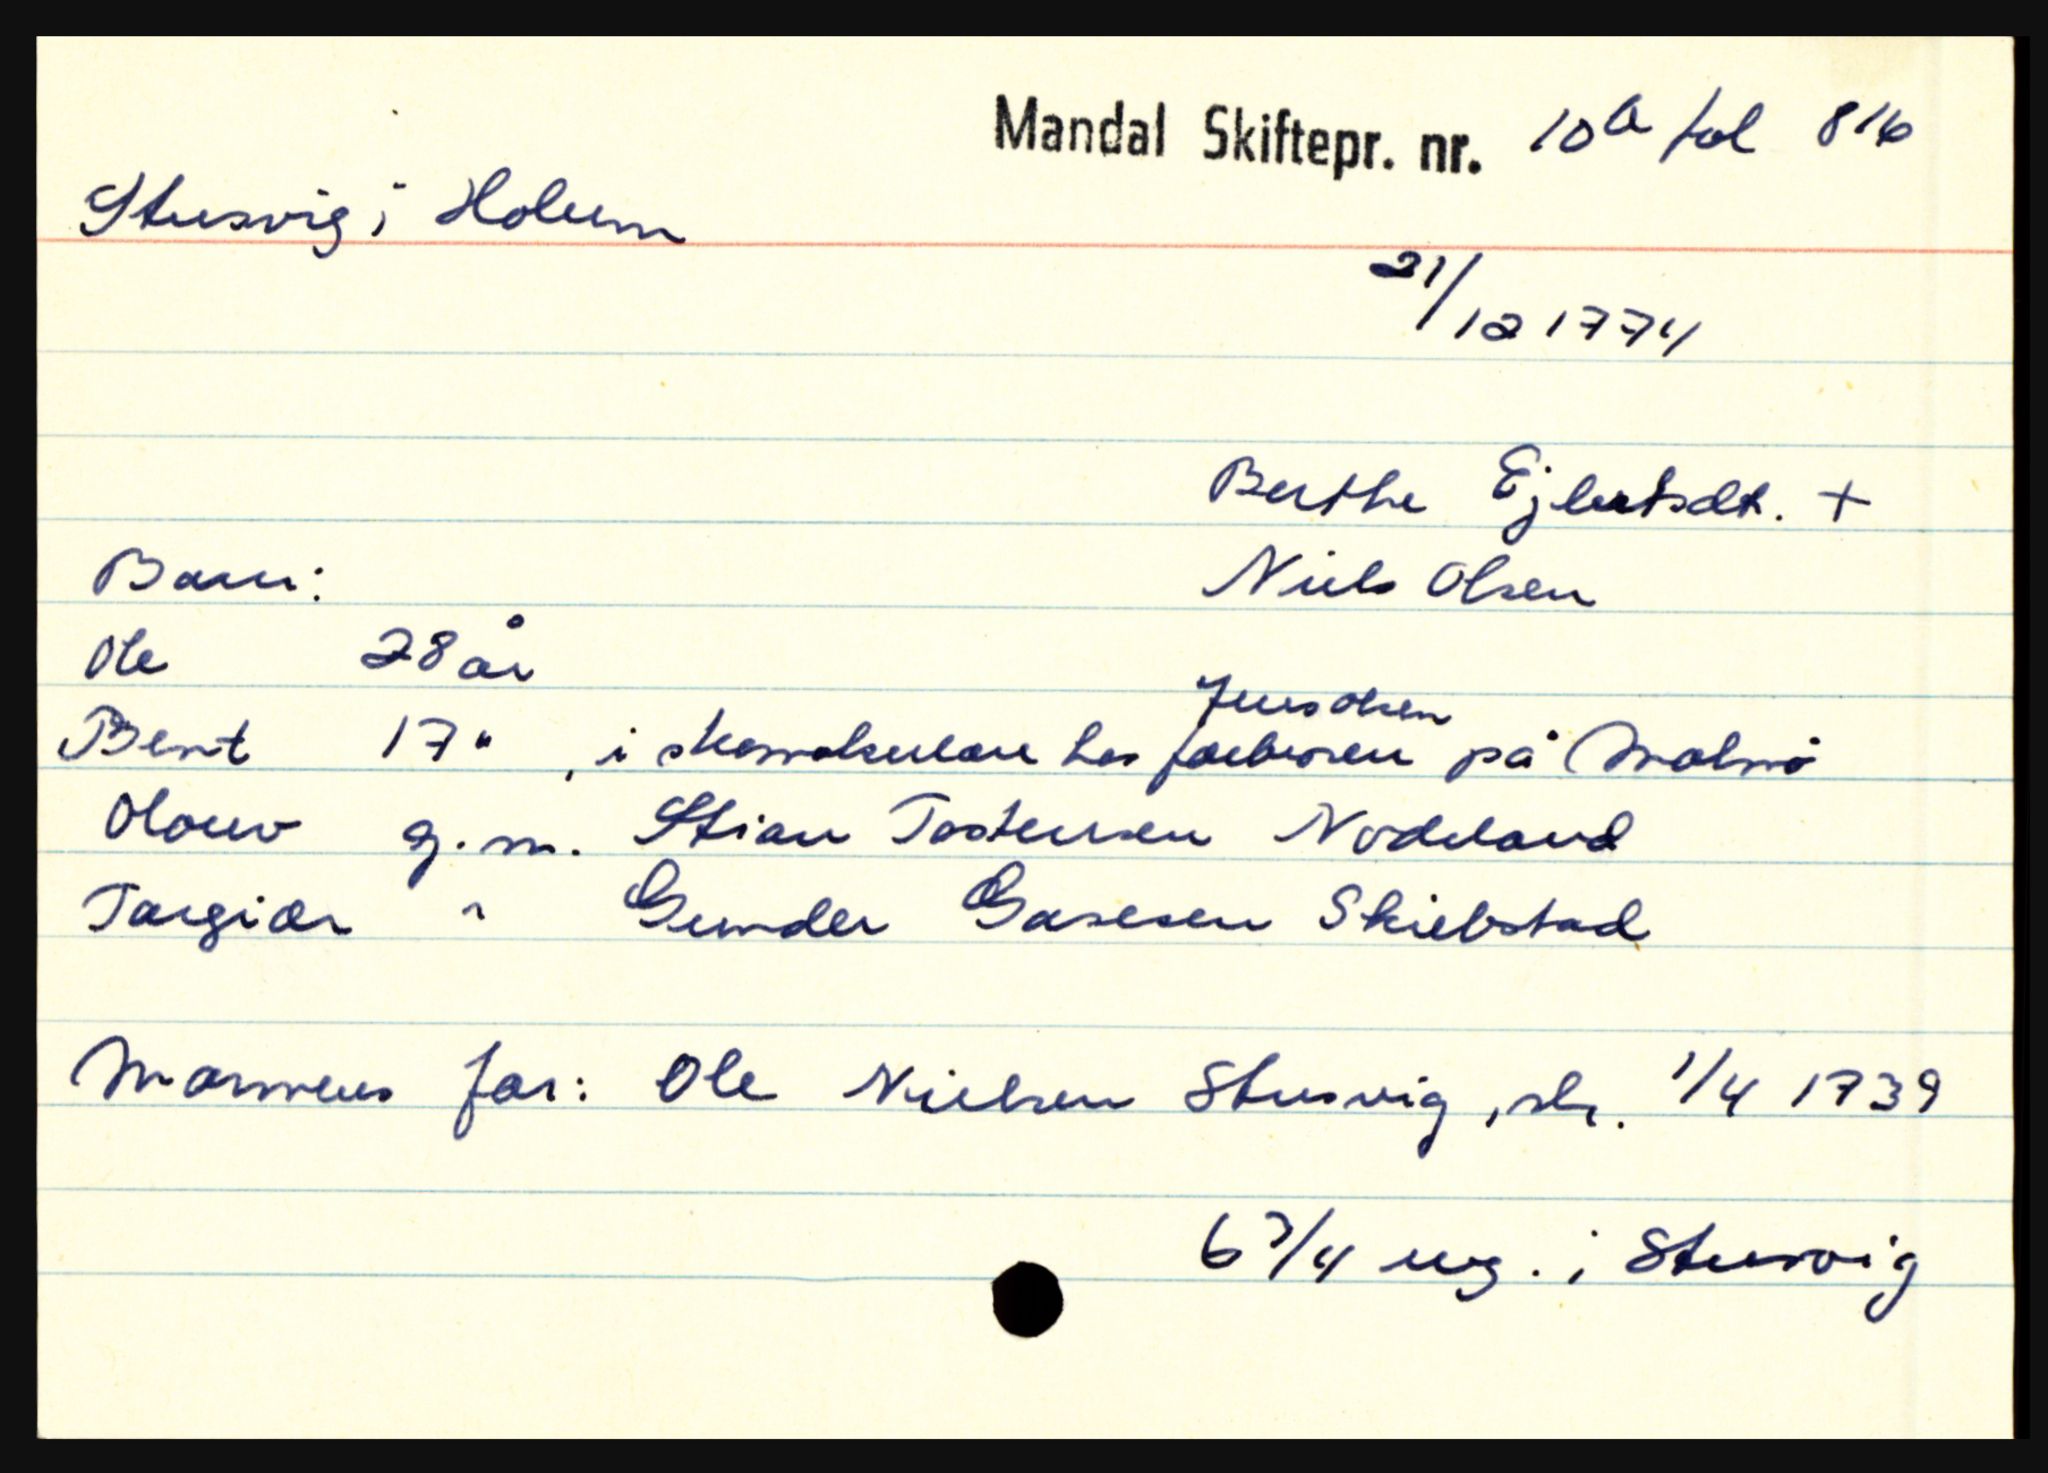 Mandal Skiftepr. nr. 10b fol 816
Stusvig i Holum
21/12 1774
Berthe Ejlertsdt. +
Barn:
Niels Olsen
Ole 28 år
Jens Olsen
Bent 17 " , i skomakerlære hos farbroren på Malmø
Olouv g.m. Stian Tostensen Nodeland
Targiær " Gunder Gasesen Skiebstad
Mannens far: Ole Nielsen Stusvig, sk. 1/4 1739
6 3/4 eng. i Stusvig